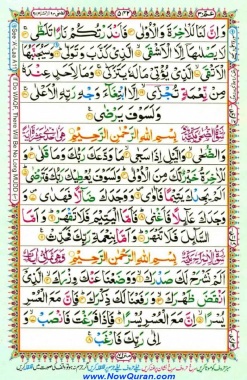 وَاِنَّ لَنَا لَلْاٰخِرَةَ وَالْاُوْلٰى ۝ فَاَنْذَرْتُكُمْ نَارًا تَلَظّٰى ۝
لَا يَصْلٰىهَاۤ اِلَّا الْاَشْقَى ۝ الَّذِىْ كَذَّبَ وَتَوَلّٰى ۝ وَسَيُجَنَّبُهَا
الْاَتْقَى ۝ الَّذِىْ يُؤْتِىْ مَالَهٗ يَتَزَكّٰى ۝ وَمَا لِاَحَدٍ عِنْدَهٗ
مِنْ نِّعْمَةٍ تُجْزٰۤى ۝ اِلَّا ابْتِغَآءَ وَجْهِ رَبِّهِ الْاَعْلٰى ۝
وَلَسَوْفَ يَرْضٰى ۝
بِسْمِ اللّٰهِ الرَّحْمٰنِ الرَّحِيْمِ
وَالضُّحٰى ۝ وَالَّيْلِ اِذَا سَجٰى ۝ مَا وَدَّعَكَ رَبُّكَ وَمَا قَلٰى ۝
وَلَلْاٰخِرَةُ خَيْرٌ لَّكَ مِنَ الْاُوْلٰى ۝ وَلَسَوْفَ يُعْطِيْكَ رَبُّكَ فَتَرْضٰى ۝
اَلَمْ يَجِدْكَ يَتِيْمًا فَاٰوٰى ۝ وَوَجَدَكَ ضَآلًّا فَهَدٰى ۝ وَ
وَجَدَكَ عَآئِلًا فَاَغْنٰى ۝ فَاَمَّا الْيَتِيْمَ فَلَا تَقْهَرْ ۝ وَاَمَّا
السَّآئِلَ فَلَا تَنْهَرْ ۝ وَاَمَّا بِنِعْمَةِ رَبِّكَ فَحَدِّثْ ۝
بِسْمِ اللّٰهِ الرَّحْمٰنِ الرَّحِيْمِ
اَلَمْ نَشْرَحْ لَكَ صَدْرَكَ ۝ وَوَضَعْنَا عَنْكَ وِزْرَكَ ۝ الَّذِىْۤ
اَنْقَضَ ظَهْرَكَ ۝ وَرَفَعْنَا لَكَ ذِكْرَكَ ۝ فَاِنَّ مَعَ الْعُسْرِ
يُسْرًا ۝ اِنَّ مَعَ الْعُسْرِ يُسْرًا ۝ فَاِذَا فَرَغْتَ فَانْصَبْ ۝ وَ
اِلٰى رَبِّكَ فَارْغَبْ ۝
www.NowQuran.com